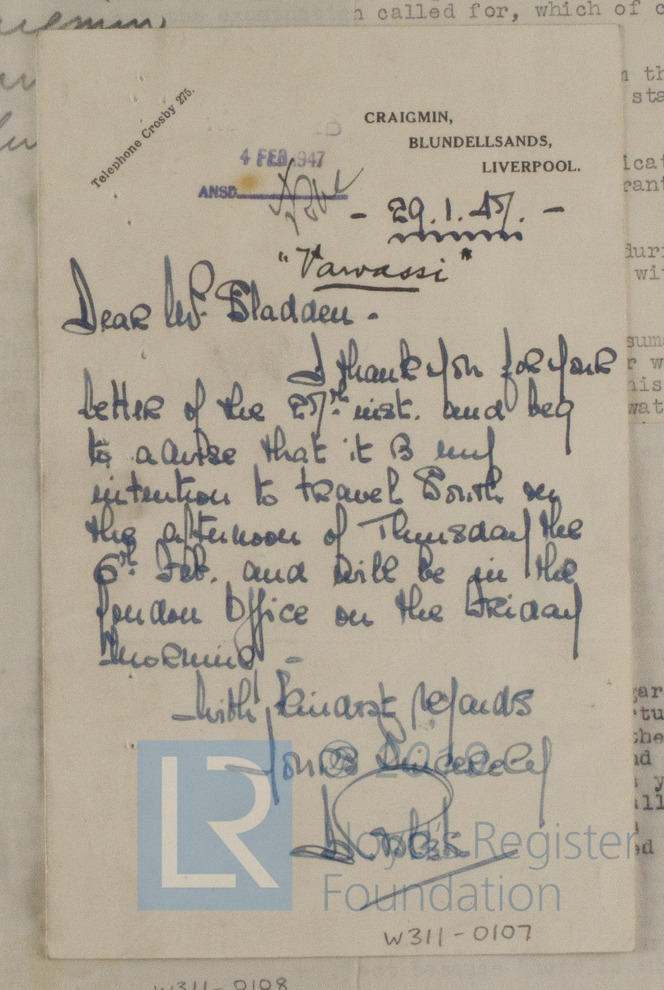 called for, which of c
Telephone Crosby 275.
CRAIGMIN,
BLUNDELLSANDS,
LIVERPOOL.
4 FEB 1947
ANSD
- 29.1.47. -
"Vawassi"
Dear Mr. Sladden -
I thank you for your
letter of the 27th inst. and beg
to advise that it is my
intention to travel South on
the afternoon of Thursday the
6th Feb. and will be in the
London Office on the Friday
morning -
With kindest regards
Yours Sincerely
© 2019
LR
Lloyd's Register
Foundation
W311-0107
W311-0108